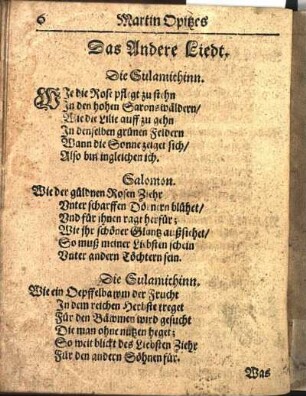 6 Martin Opitzes
Das Andere Liedt.
Die Sulamithinn.
WIe die Rose pflegt zu stehn
In den hohen Sarons wäldern/
Wie die Lilie auff zu gehn
In denselben grünen Feldern
Wann die Sonne zeiget sich/
Also bin ingleichen ich.
Salomon.
Wie der güldnen Rosen Ziehr
Vnter scharffen Dörnern blühet/
Vnd für ihnen ragt herfür;
Wie ihr schöner Glantz außsiehet/
So muß meiner Liebsten schein
Vnter andern Töchtern sein.
Die Sulamithinn.
Wie ein Oepffelbawm der Frucht
In dem reichen Herbste treget
Für den Bäwmen wird gesucht
Die man ohne nützen heget;
So weit blickt des Liebsten Ziehr
Für den andern Söhnen für.
Was